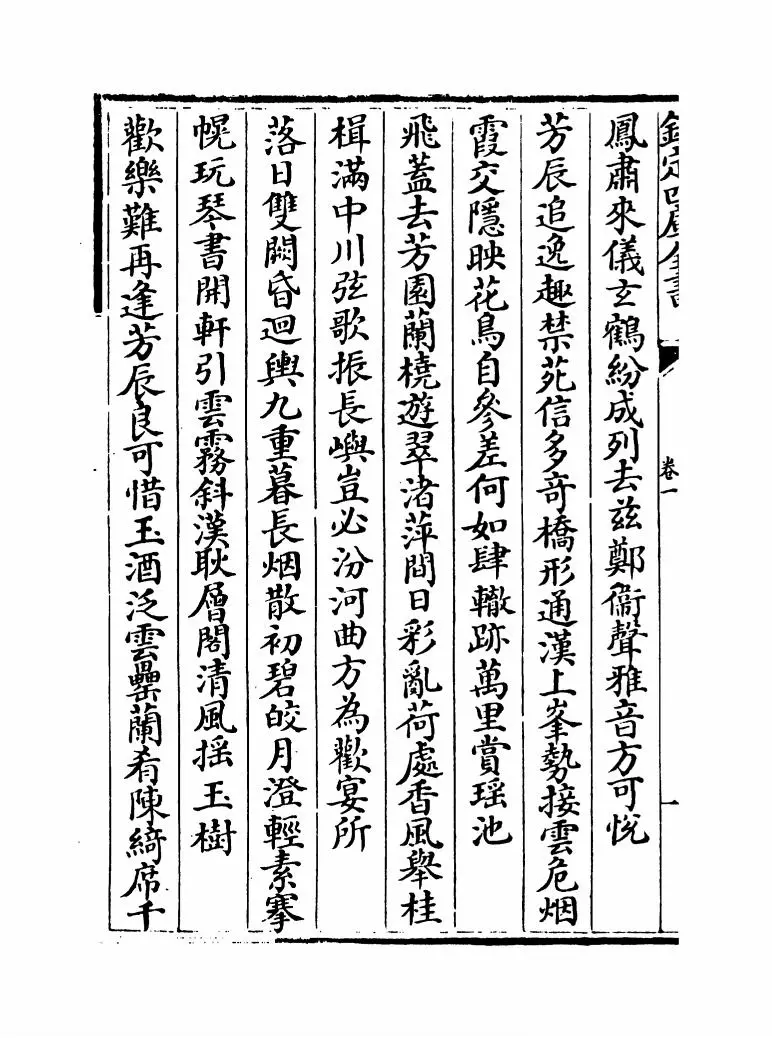 欽定四庫全書
卷一
一
鳳肅來儀玄鶴紛成列去兹鄭衞聲雅音方可悅
芳辰追逸趣禁苑信多竒橋形通漢上峯勢接雲危烟
霞交隱映花鳥自參差何如肆轍跡萬里賞瑶池
飛蓋去芳園蘭橈遊翠渚萍間日彩亂荷處香風舉桂
楫滿中川弦歌振長嶼豈必汾河曲方為歡宴所
落日雙闕昏迴輿九重暮長烟散初碧皎月澄輕素搴
幌玩琴書開軒引雲霧斜漢耿層閣清風揺玉樹
歡樂難再逢芳辰良可惜玉酒泛雲罍蘭肴陳綺席千